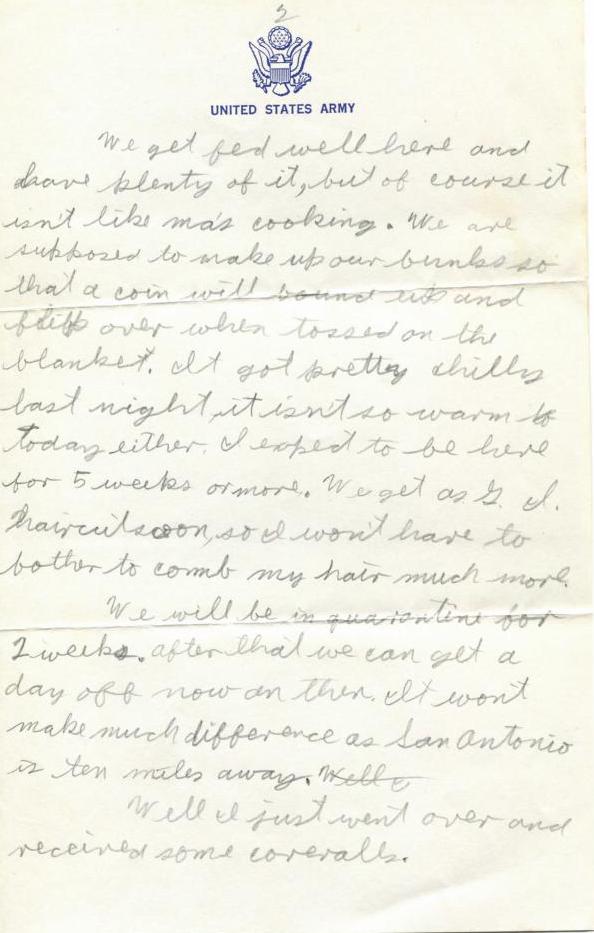 2
UNITED STATES ARMY
We get fed well here and
have plenty of it, but of course it
isn't like ma's cooking. We are
supposed to make up our bunks so
that a coin will bounce up and
flip over when tossed on the
blanket. It got pretty chilly
last night, it isn't so warm
today either. I expect to be here
for 5 weeks or more. We get a G. I.
haircut soon, so I won't have to
bother to comb my hair much more.
We will be in quarantine for
2 weeks. after that we can get a
day off now an then. It won't
make much difference as San Antonio
is ten miles away. Well
Well I just went over and
received some coveralls.